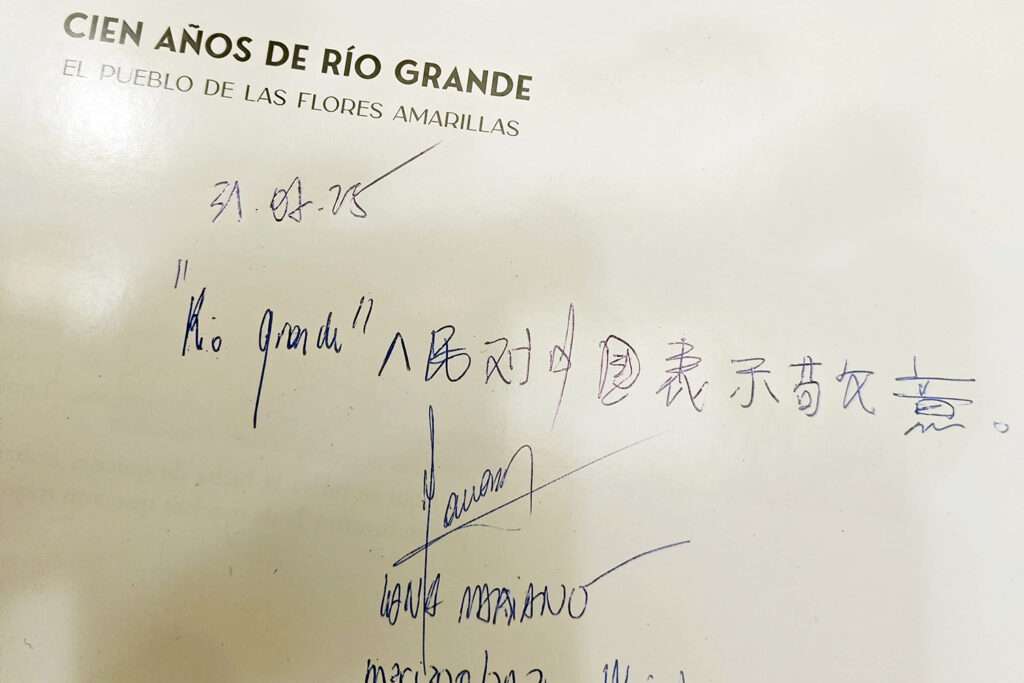 CIEN AÑOS DE RÍO GRANDE
EL PUEBLO DE LAS FLORES AMARILLAS
31.07.25
"Rio grande" 人民对中国表示敬意。
LANA MARIANO